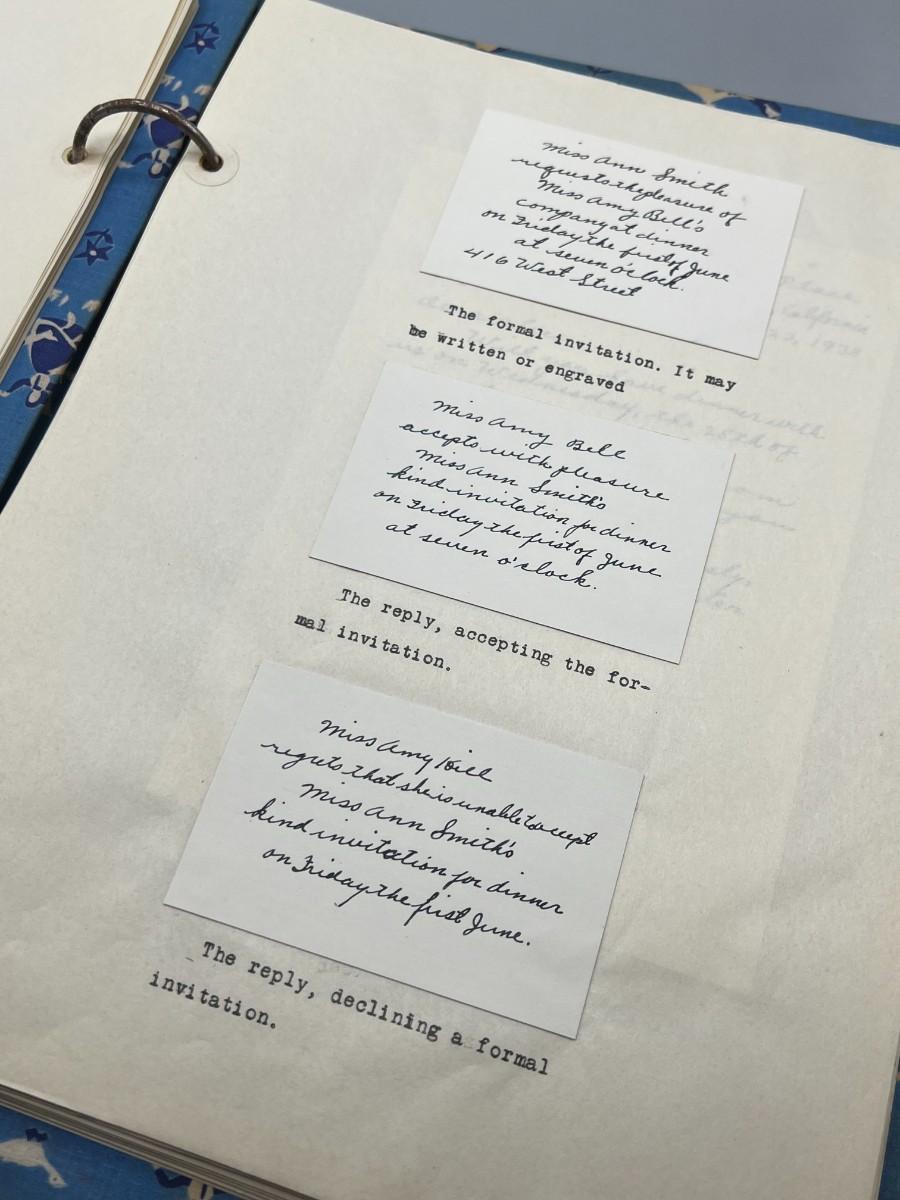 Miss Ann Smith
requests the pleasure of
Miss Amy Bell's
company at dinner
on Friday the first of June
at seven o'clock.
416 West Street
The formal invitation. It may
be written or engraved
Miss Amy Bell
accepts with pleasure
Miss Ann Smith's
kind invitation for dinner
on Friday the first of June
at seven o'clock.
The reply, accepting the for-
mal invitation.
Miss Amy Bell
regrets that she is unable to accept
Miss Ann Smith's
kind invitation for dinner
on Friday the first June.
The reply, declining a formal
invitation.
California
dinner with
us on Wednesday, the 25th of